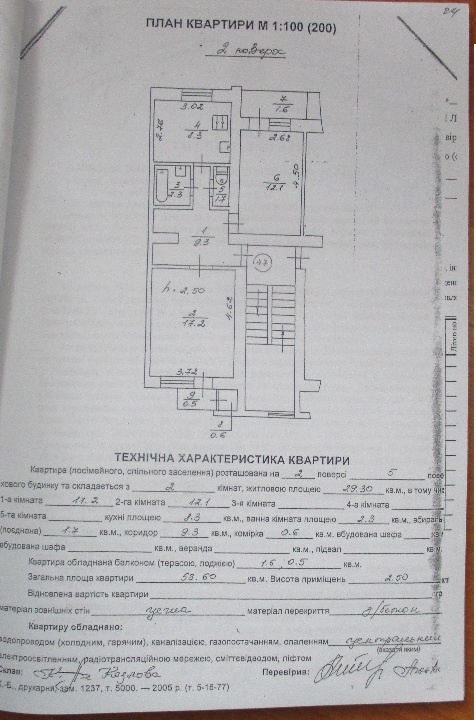 24
ПЛАН КВАРТИРИ М 1:100 (200)
2 поверх
3.02
7
1.6
2.76
4
8.3
2.63
6
12.1
4.50
3
2.3
5
1.7
1
9.3
47
h = 2.50
2
17.2
4.62
3.72
9
0.5
8
0.6
ТЕХНІЧНА ХАРАКТЕРИСТИКА КВАРТИРИ
Квартира (посімейного, спільного заселення) розташована на 2 поверсі 5 пове
хового будинку та складається з 2 кімнат, житловою площею 29.30 кв.м, в тому чи
1-а кімната 17.2 2-га кімната 12.1 3-я кімната 4-а кімната
5-та кімната кухні площею 8.3 кв.м, ванна кімната площею 2.3 кв.м, вбираль
(поєднана) 1.7 кв.м, коридор 9.3 кв.м, комірка 0.6 кв.м. вбудована шафа кв
вбудована шафа кв.м, веранда кв.м., підвал кв.м.
Квартира обладнана балконом (терасою, лоджією) 1.6, 0.5 кв.м.
Загальна площа квартири 53.60 кв.м. Висота приміщень 2.50
Відновлена вартість квартири
матеріал зовнішніх стін цегла матеріал перекриття з/бетон
Квартиру обладнано:
водопроводом (холодним, гарячим), каналізацією, газопостачанням, опаленням центральним
(вказати яким)
електроосвітленням, радіотрансляційною мережею, сміттєвідводом, ліфтом
Склав: Козлова Перевірив:
друкарня, зам. 1237, т. 5000. — 2005 р. (т. 5-16-77)